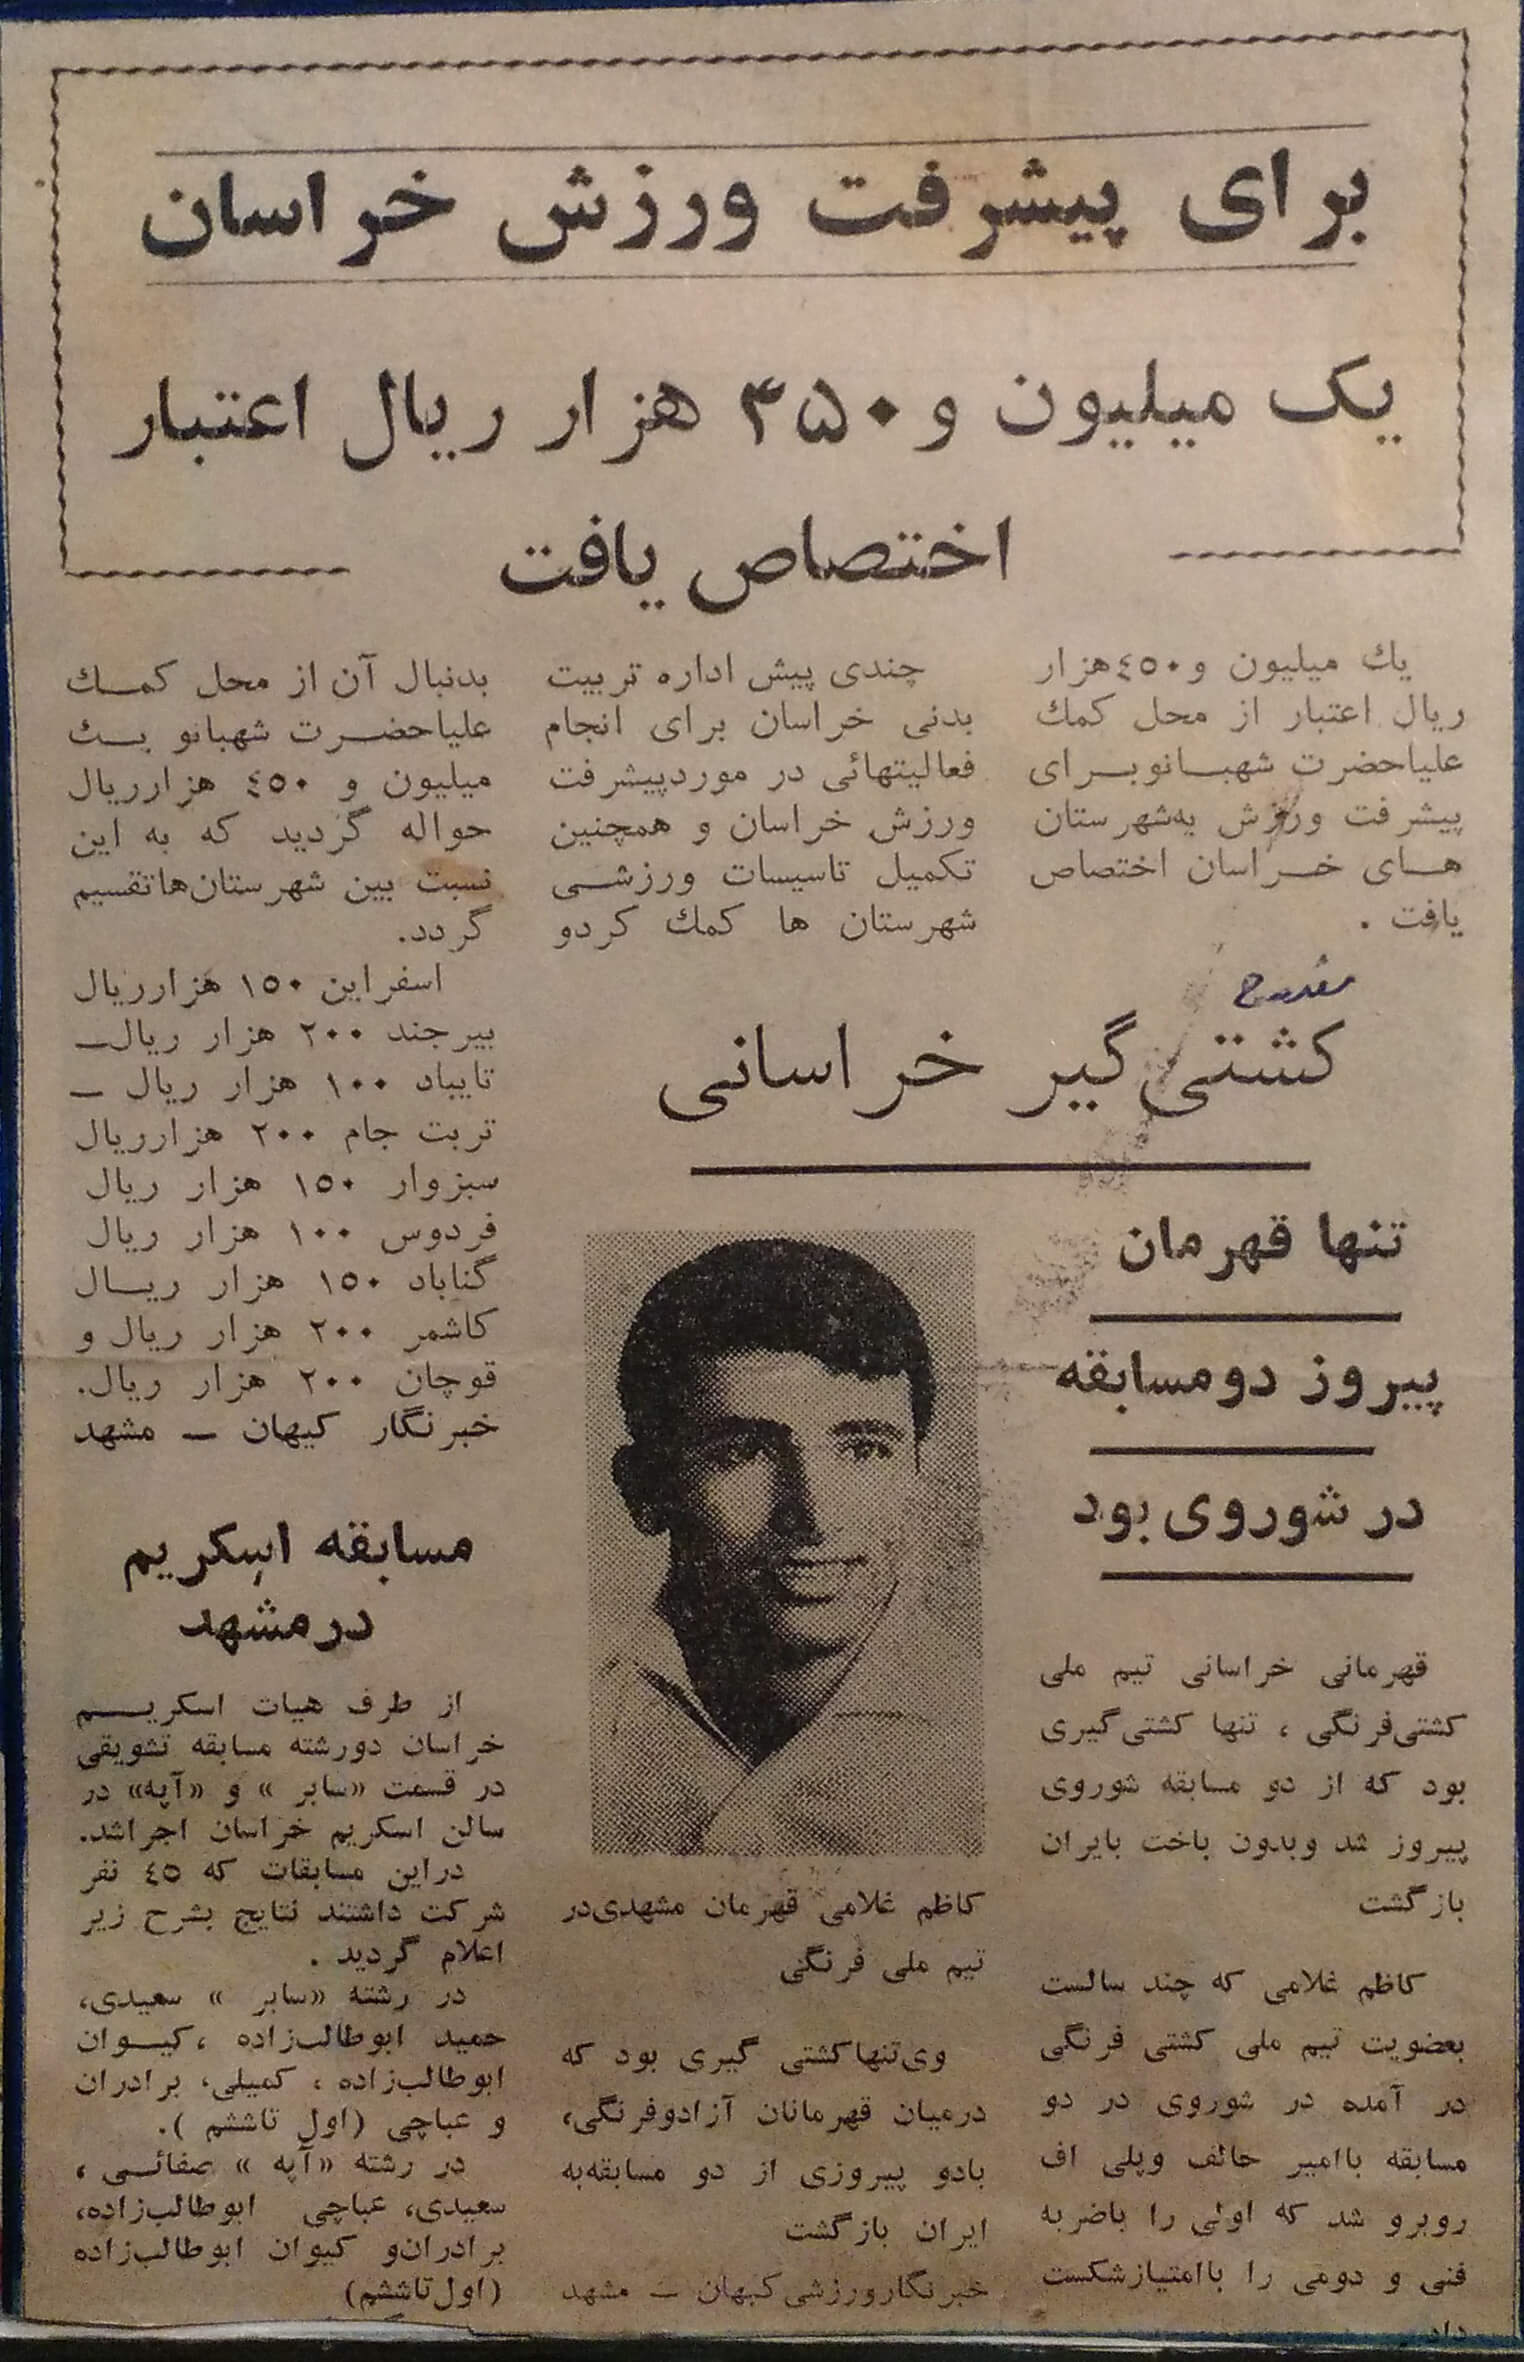 برای پیشرفت ورزش خراسان
یک میلیون و ۴۵۰ هزار ریال اعتبار
اختصاص یافت
یك میلیون و٤٥٠هزار
ریال اعتبار از محل کمك
علیاحضرت شهبانوبرای
پیشرفت ورزش به‌شهرستان
های خراسان اختصاص
یافت .
چندی پیش اداره تربیت
بدنی خراسان برای انجام
فعالیتهائی در موردپیشرفت
ورزش خراسان و همچنین
تکمیل تاسیسات ورزشی
شهرستان ها کمك کردو
بدنبال آن از محل کمك
علیاحضرت شهبانو یك
میلیون و ٤٥٠ هزارریال
حواله گردید که به این
نسبت بین شهرستان‌هاتقسیم
گردد.
اسفراین ۱۵۰ هزارریال
بیرجند ۲۰۰ هزار ریال—
تایباد ۱۰۰ هزار ریال —
تربت جام ۲۰۰ هزارریال
سبزوار ۱۵۰ هزار ریال
فردوس ۱۰۰ هزار ریال
گناباد ۱۵۰ هزار ریال
کاشمر ۲۰۰ هزار ریال و
قوچان ۲۰۰ هزار ریال.
خبرنگار کیهان — مشهد
کشتی‌گیر خراسانی
تنها قهرمان
پیروز دومسابقه
در شوروی بود
قهرمانی خراسانی تیم ملی
کشتی‌فرنگی ، تنها کشتی‌گیری
بود که از دو مسابقه شوروی
پیروز شد وبدون باخت بایران
بازگشت
کاظم غلامی که چند سالست
بعضویت تیم ملی کشتی فرنگی
در آمده در شوروی در دو
مسابقه باامیر حالف وپلی اف
روبرو شد که اولی را باضربه
فنی و دومی را باامتیازشکست
داد.
کاظم غلامی قهرمان مشهدی‌در
تیم ملی فرنگی
وی‌تنهاکشتی گیری بود که
درمیان قهرمانان آزادوفرنگی،
بادو پیروزی از دو مسابقه‌به
ایران بازگشت
خبرنگارورزشی‌کیهان — مشهد
مسابقه اسکریم
درمشهد
از طرف هیات اسکریم
خراسان دورشته مسابقه تشویقی
در قسمت «سابر » و «آپه» در
سالن اسکریم خراسان اجراشد.
دراین مسابقات که ٤٥ نفر
شرکت داشتند نتایج بشرح زیر
اعلام گردید .
در رشته «سابر » سعیدی،
حمید ابوطالب‌زاده ،کیوان
ابوطالب‌زاده ، کمیلی، برادران
و عباچی (اول تاششم ).
در رشته «آپه » صفائی ،
سعیدی، عباچی ابوطالب‌زاده،
برادران‌و کیوان ابوطالب‌زاده
(اول‌تاششم)